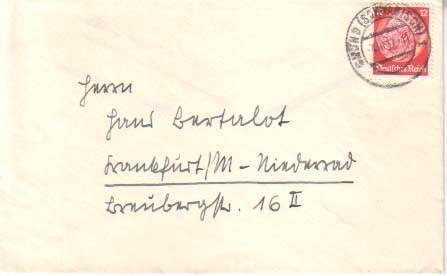 12
GMÜND (SCHWÄBISCH)
Deutsches Reich
Herrn
Hans Bertalot
Frankfurt/M - Niederrad
Breubergstr. 16 II